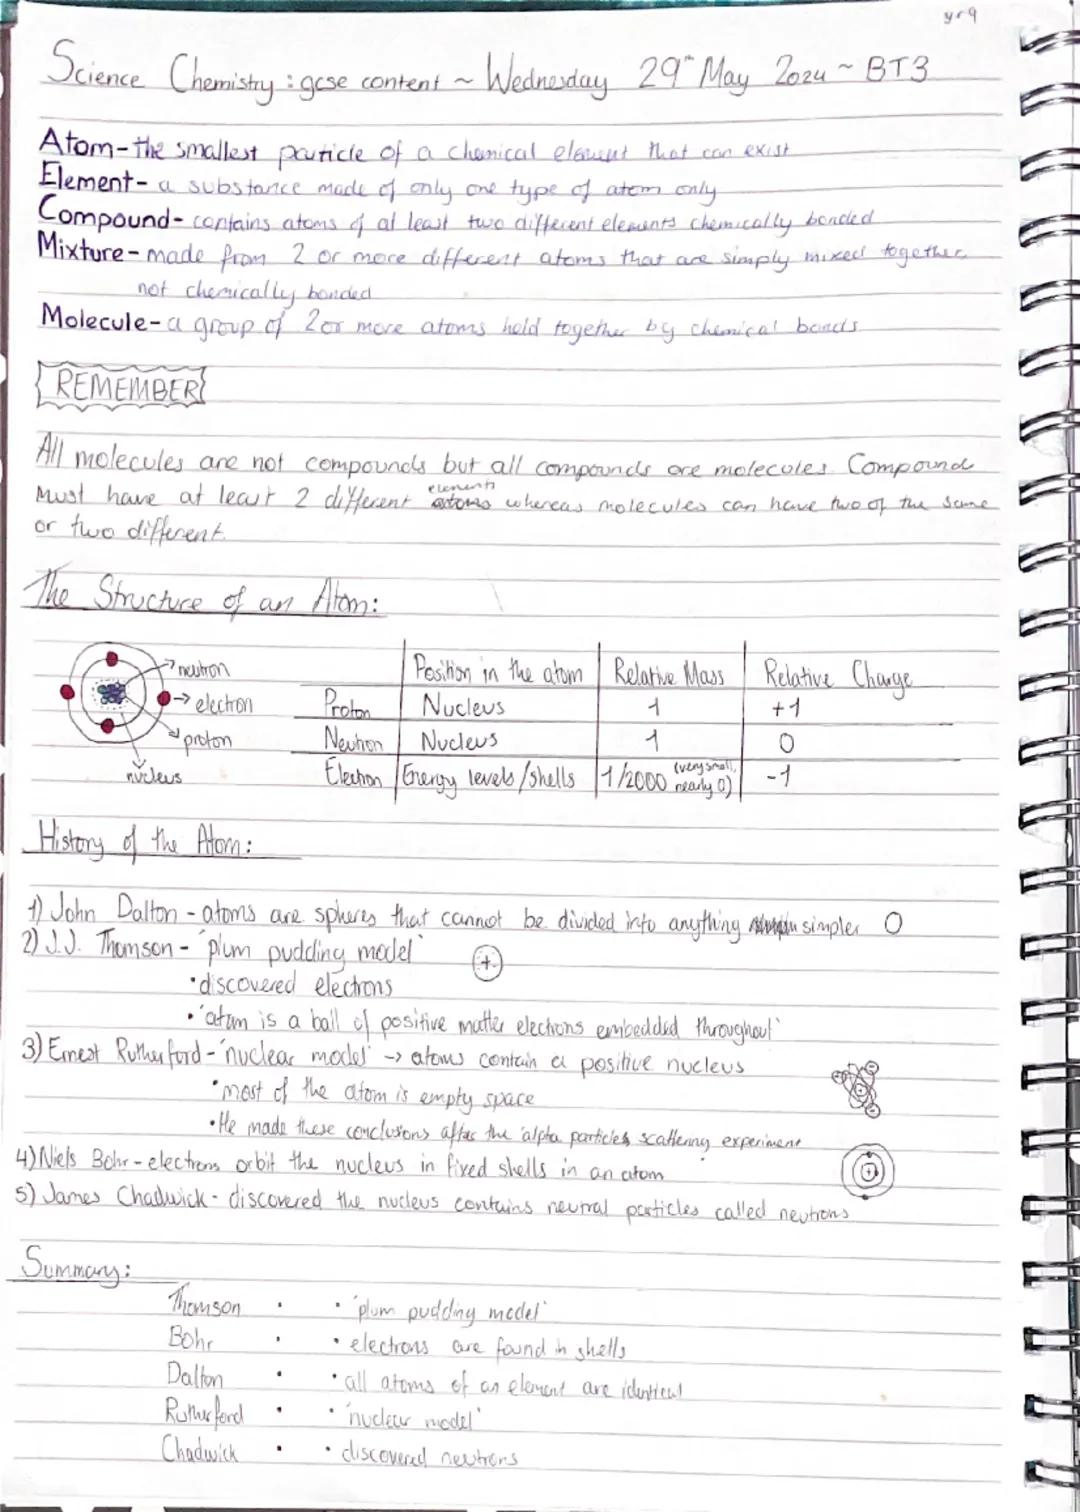 yr9
Science Chemistry : gcse content ~ Wednesday 29th May 2024 ~ BT3
Atom - the smallest particle of a chemical element that can exist
Element - a substance made of only one type of atom only
Compound - contains atoms of at least two different elements chemically bonded
Mixture - made from 2 or more different atoms that are simply mixed together,
not chemically bonded
Molecule - a group of 2 or more atoms held together by chemical bonds
REMEMBER
All molecules are not compounds but all compounds are molecules. Compound
elements
must have at least 2 different atoms whereas molecules can have two of the same
or two different.
The Structure of an Atom:
neutron
electron
proton
nucleus
Position in the atom Relative Mass Relative Charge
Proton Nucleus 1 +1
Neutron Nucleus 1 0
Electron Energy levels/shells 1/2000 (very small, nearly 0) -1
History of the Atom:
1) John Dalton - atoms are spheres that cannot be divided into anything simpler
2) J.J. Thomson - 'plum pudding model'
+
• discovered electrons
• 'atom is a ball of positive matter electrons embedded throughout'
3) Ernest Rutherford - 'nuclear model' → atoms contain a positive nucleus
• most of the atom is empty space
• He made these conclusions after the 'alpha particles scattering experiment
4) Niels Bohr - electrons orbit the nucleus in fixed shells in an atom
5) James Chadwick - discovered the nucleus contains neutral particles called neutrons
Summary:
Thomson • • 'plum pudding model'
Bohr • • electrons are found in shells
Dalton • • all atoms of an element are identical
Rutherford • • 'nuclear model'
Chadwick • • discovered neutrons